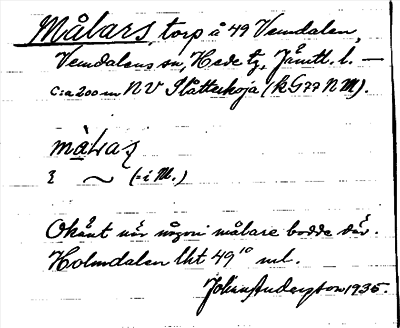 Målars, torp å 49 Vemdalen,
Vemdalens sn, Hede tg, Jämtl. l. —
c:a 200 m NV Slåtterkoja (k G77 NM).
målaʃ
ξ ~ (= i M.)
Okänt när någon målare bodde där.
Holmdalen lht 49¹⁰ ml.
Johan Andersson 1935.